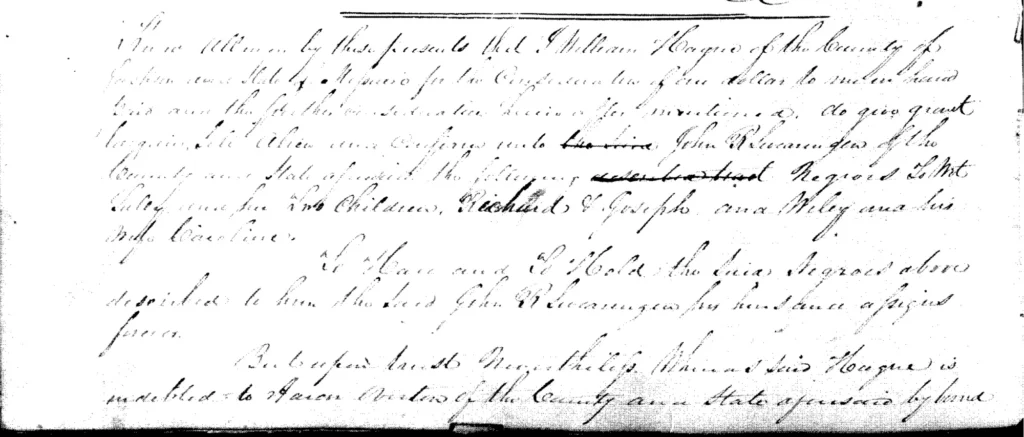 Know all men by these presents that I William Hague of the County of
Jackson and State of Missouri for the Consideration of one dollar to me in hand
and the further consideration herein after mentioned. do give grant
bargain, Sell Alien and Confirm unto John R Swearingen of the
County and State aforesaid the following Negroes To Wit
and her Two Children, Richard & Joseph and Wiley and his
Wife Caroline.
To Have and To Hold the Said Negroes above
described to him the Said John R Swearingen his heirs and assigns
forever.
But upon trust Nevertheless, Whereas said Hague is
indebted to Aaron Overton of the County and State aforesaid by bond